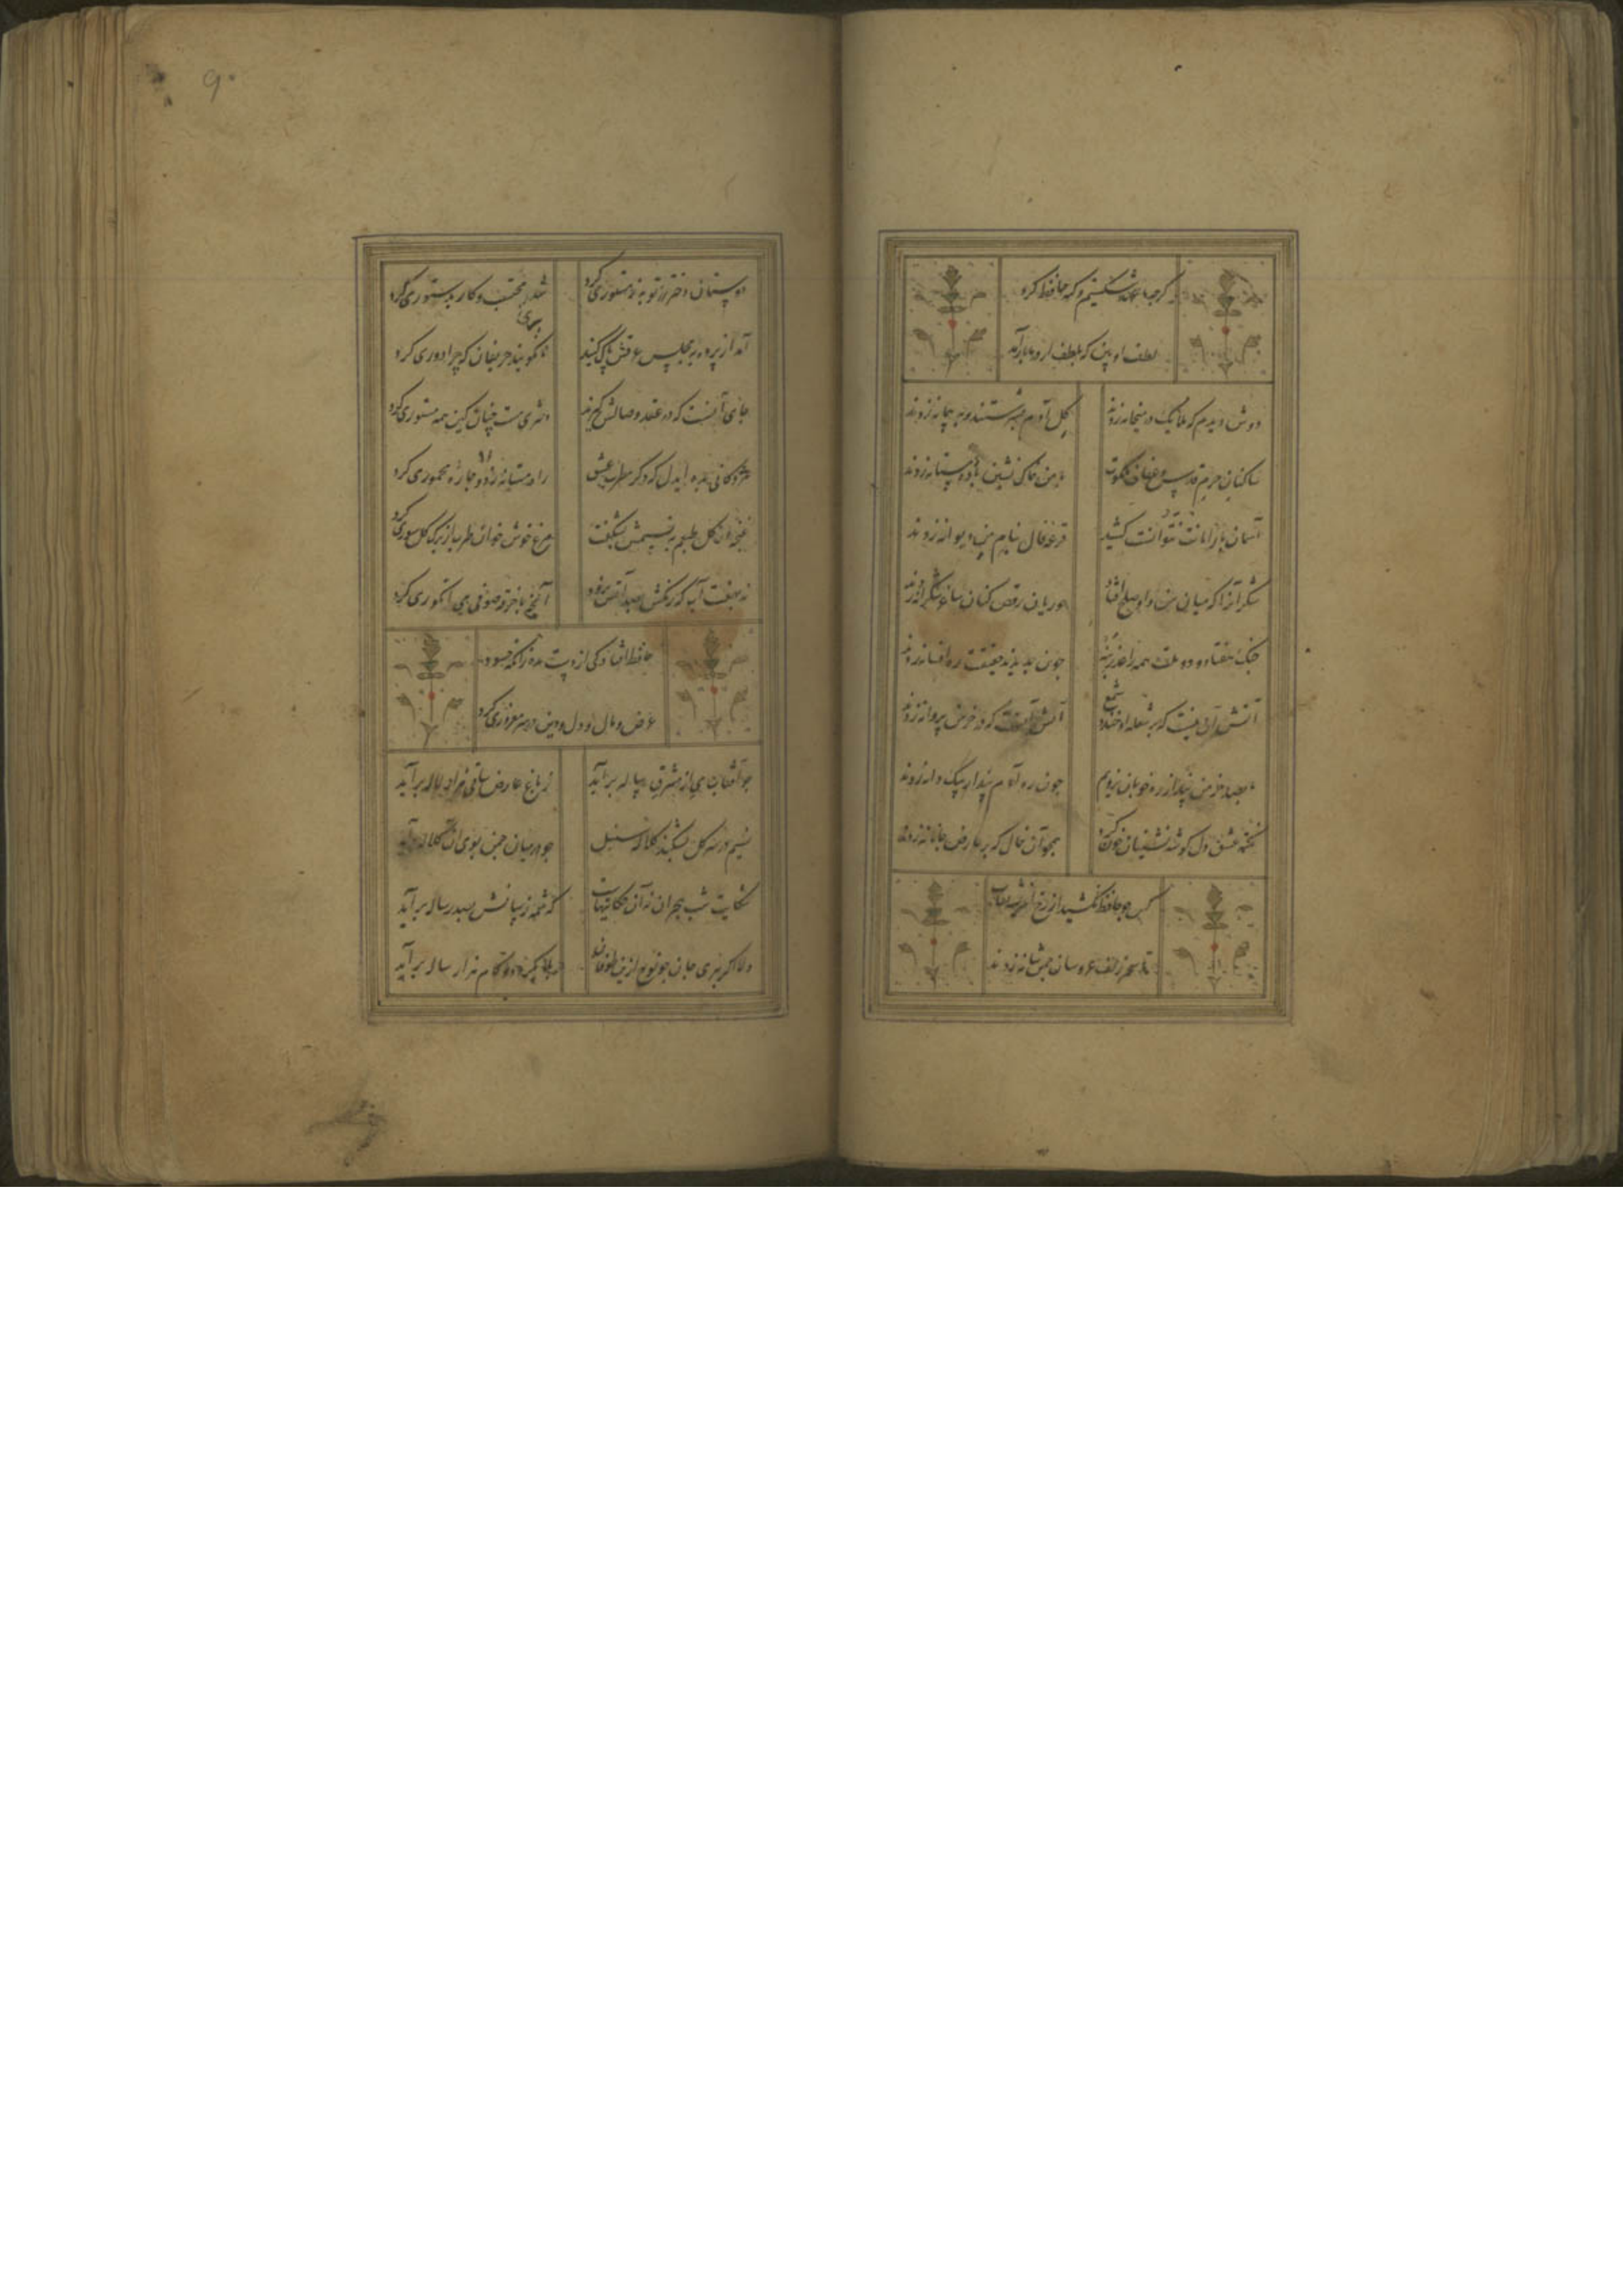 کرچه ما عهد شکستیم و کنه حافظ کرد
لطف او بین که بلطف از در ما بازآمد
دوش دیدم که ملایک در میخانه زدند کل آدم بسرشتند و به پیمانه زدند
ساکنان حرم قدس و عفاف ملکوت با من خاک نشین باده مستانه زدند
آسمان بار امانت نتوانست کشید قرعه فال بنام من دیوانه زدند
شکر آنرا که میان من و او صلح افتاد حوریان رقص کنان ساغر شکرانه زدند
جنک هفتاد و دو ملت همه را عذر بنه چون ندیدند حقیقت ره افسانه زدند
آتش آن نیست که بر شعله او خندد شمع آتش آنست که در خرمن پروانه زدند
ما بصد خرمن پندار ز ره چون نرویم چون ره آدم بیدار بیک دانه زدند
نکته عشق دل کوشه نشینان خون کرد همچو آن خال که بر عارض جانانه زدند
کس جو حافظ نکشید از رخ اندیشه نقاب
تا سر زلف عروسان چمن شانه زدند
٩٠
دوستان دختر رز توبه ز مستوری کرد شد بر محتسب و کار بدستوری کرد
آمد از پرده به مجلس عرقش پاک کنید تا نکویند حریفان که چرا دوری کرد
جای آنست که در عقد وصالش کیرند دختری مست چنان کین همه مستوری کرد
مژدکانی بده ایدل که دکر مطرب عشق راه مستانه زد و چاره مخموری کرد
غنچه کلبن طبعم ز نسیمش بشکفت مرغ خوش خوان طرب از برک کل سوری کرد
نه بهفت آب که رنکش بصد آتش نرود آنچ با خرقه صوفی می انکوری کرد
حافظ افتادکی از دست مده زانکه حسود
عرض و مال و دل و دین در سر مغروری کرد
جو آفتاب می از مشرق پیاله برآید ز باغ عارض ساقی هزار لاله برآید
نسیم در سر کل بشکند کلاله سنبل جو در میان چمن بوی آن کلاله برآید
شکایت شب هجران نه آن حکایتهاست که شمه ز بیانش بصد رساله برآید
کرت چو نوح نبی